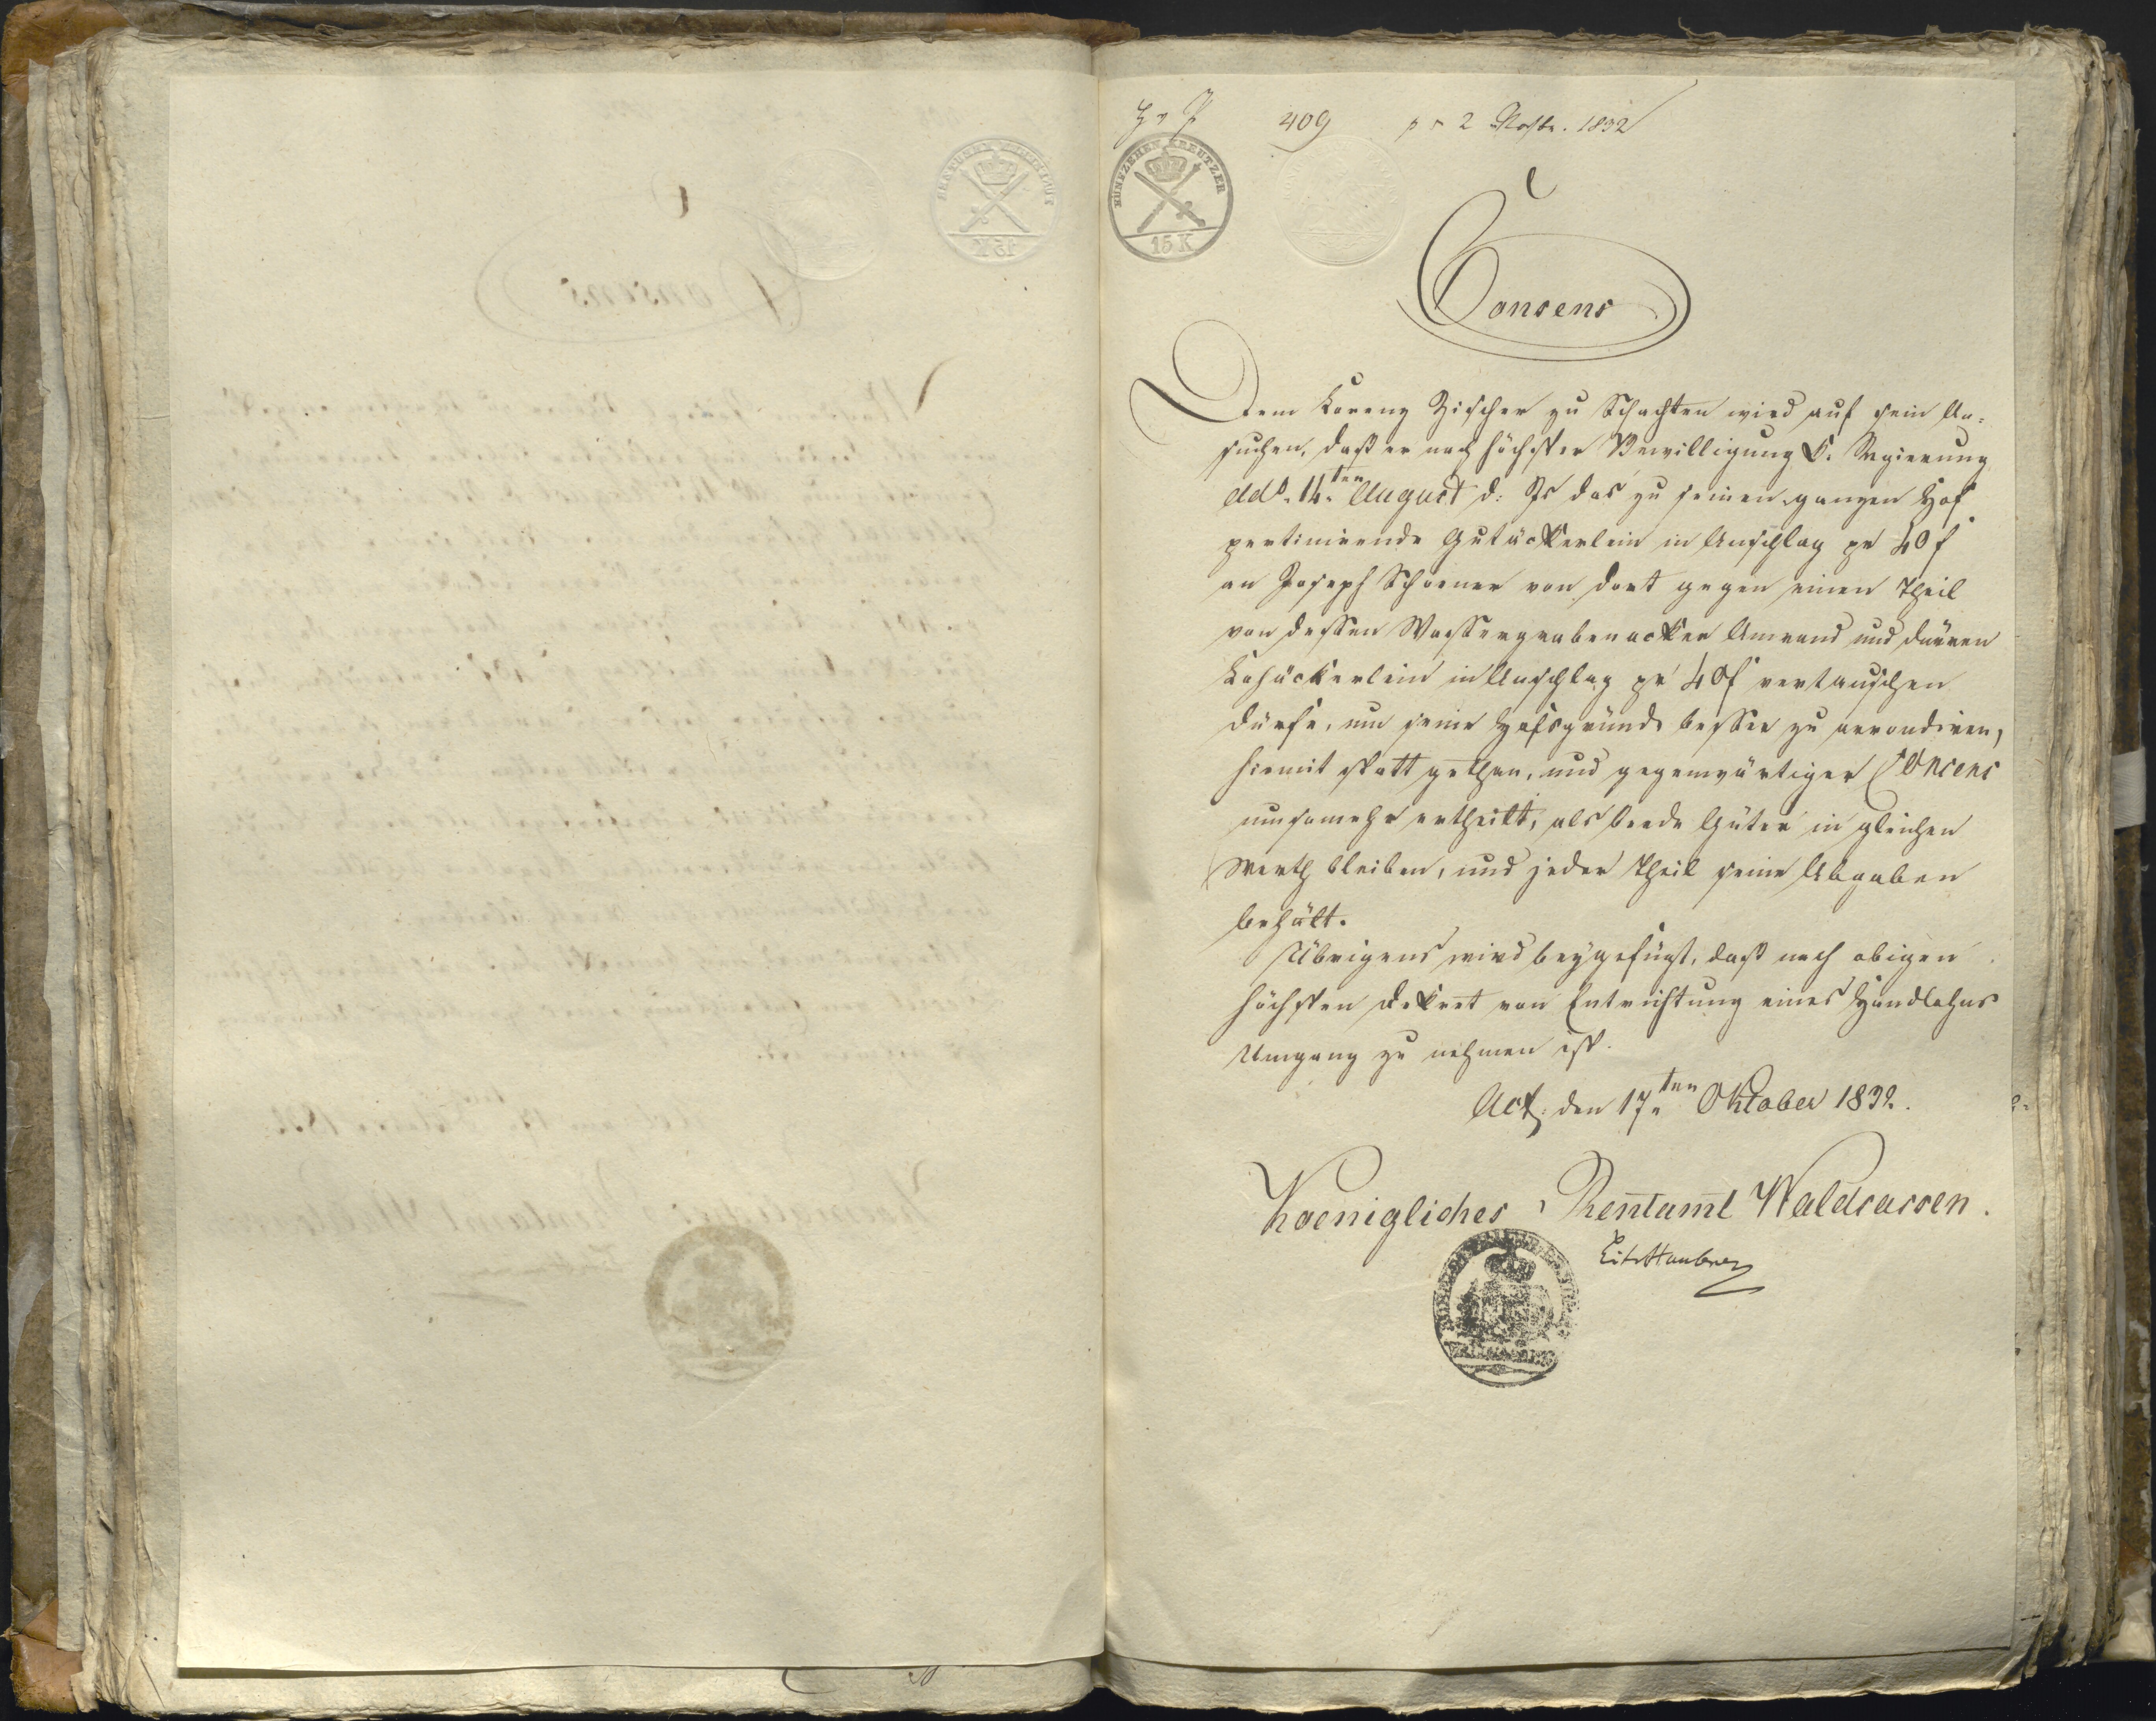 409 pr 2 Novbr. 1832
FÜNFZEHEN KREUTZER
15 K
Consens
Dem Lorenz Zischer zu Schachten wird auf sein An-
suchen, daß er nach höchster Bewilligung K. Regierung
dd°. 14.ten August d: Js das zu seinen ganzen Hof
pertinirende Gutäckerlein in Anschlag pr 40 f
an Joseph Schoener von dort gegen einen Theil
von dessen Wassergrabenacker Amrand und dürren
Lohäckerlein in Anschlag pr 40 f vertauschen
dürfe, um seine Hofsgründe besser zu arrondiren,
hiemit statt gethan, und gegenwärtiger Consens
umsomehr ertheilt, als beede Güter in gleichen
Werth bleiben, und jeder Theil seine Abgaben
behält.
Übrigens wird beygefügt, daß nach obigen
höchsten Dekret von Entrichtung eines Handlohns
Umgang zu nehmen ist.
Act: den 17.ten Oktober 1832.
Koenigliches Rentamt Waldsassen.